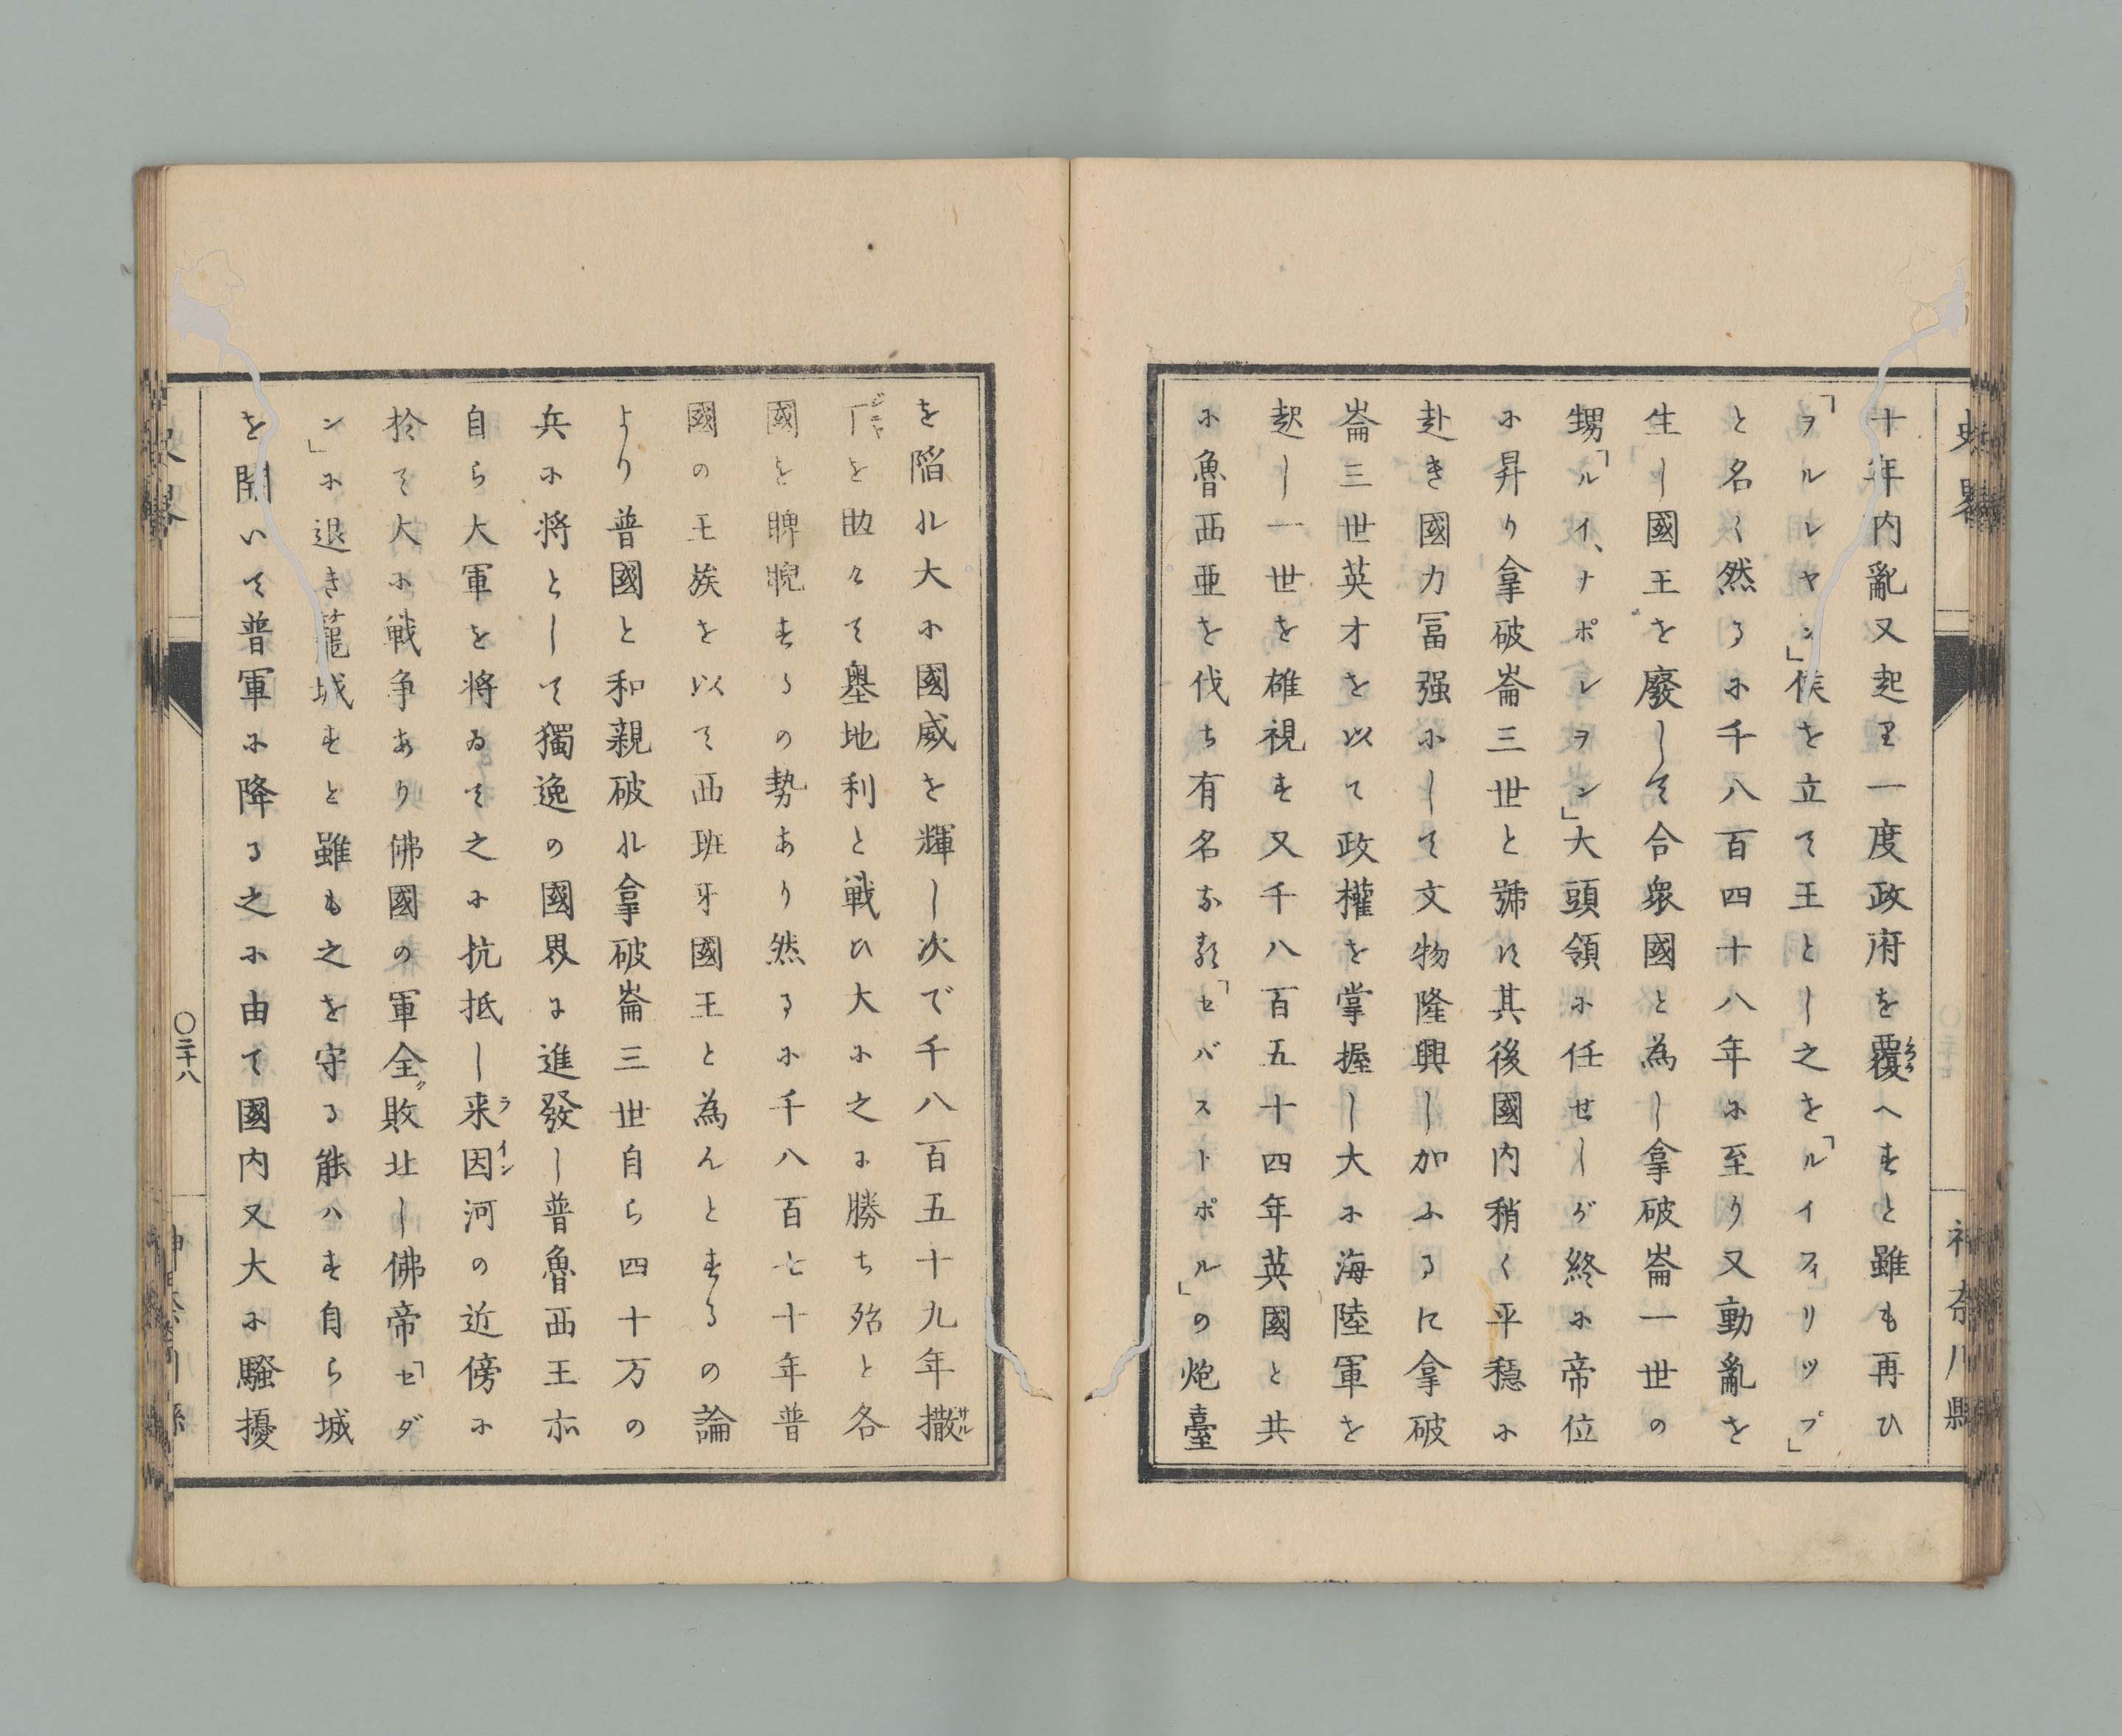 史畧
神奈川縣
十年内亂又起里一度政府を覆へすと雖も再ひ
「ヲルレヤン」侯を立て王とし之を「ルイフィリツプ」
と名く然るに千八百四十八年に至り又動亂を
生し國王を廢して合衆國と為し拿破崙一世の
甥「ルイ、ナポレヲン」大頭領に任せしが終に帝位
に昇り拿破崙三世と號に其後國内稍く平穏に
赴き國力冨强にして文物隆興し加ふるに拿破
崙三世英才を以て政權を掌握し大に海陸軍を
起し一世を雄視す又千八百五十四年英國と共
に魯西亜を伐ち有名なる「セバストポル」の炮臺
を陥れ大に國威を輝し次で千八百五十九年撒サル
丁ジニヤを助けて墺地利と戦ひ大に之に勝ち殆と各
國を睥睨するの勢あり然るに千八百七十年普
國の王族を以て西班牙國王と為んとするの論
より普國と和親破れ拿破崙三世自ら四十万の
兵に将として獨逸の國界に進發し普魯西王亦
自ら大軍を将ゐて之に抗抵し来ラ因イン河の近傍に
於て大に戦争あり佛國の軍全ク敗北し佛帝「セダ
ン」に退き籠城すと雖も之を守る能ハす自ら城
を開いて普軍に降る之に由て國内又大に騒擾
史畧
〇三十八
神奈川縣